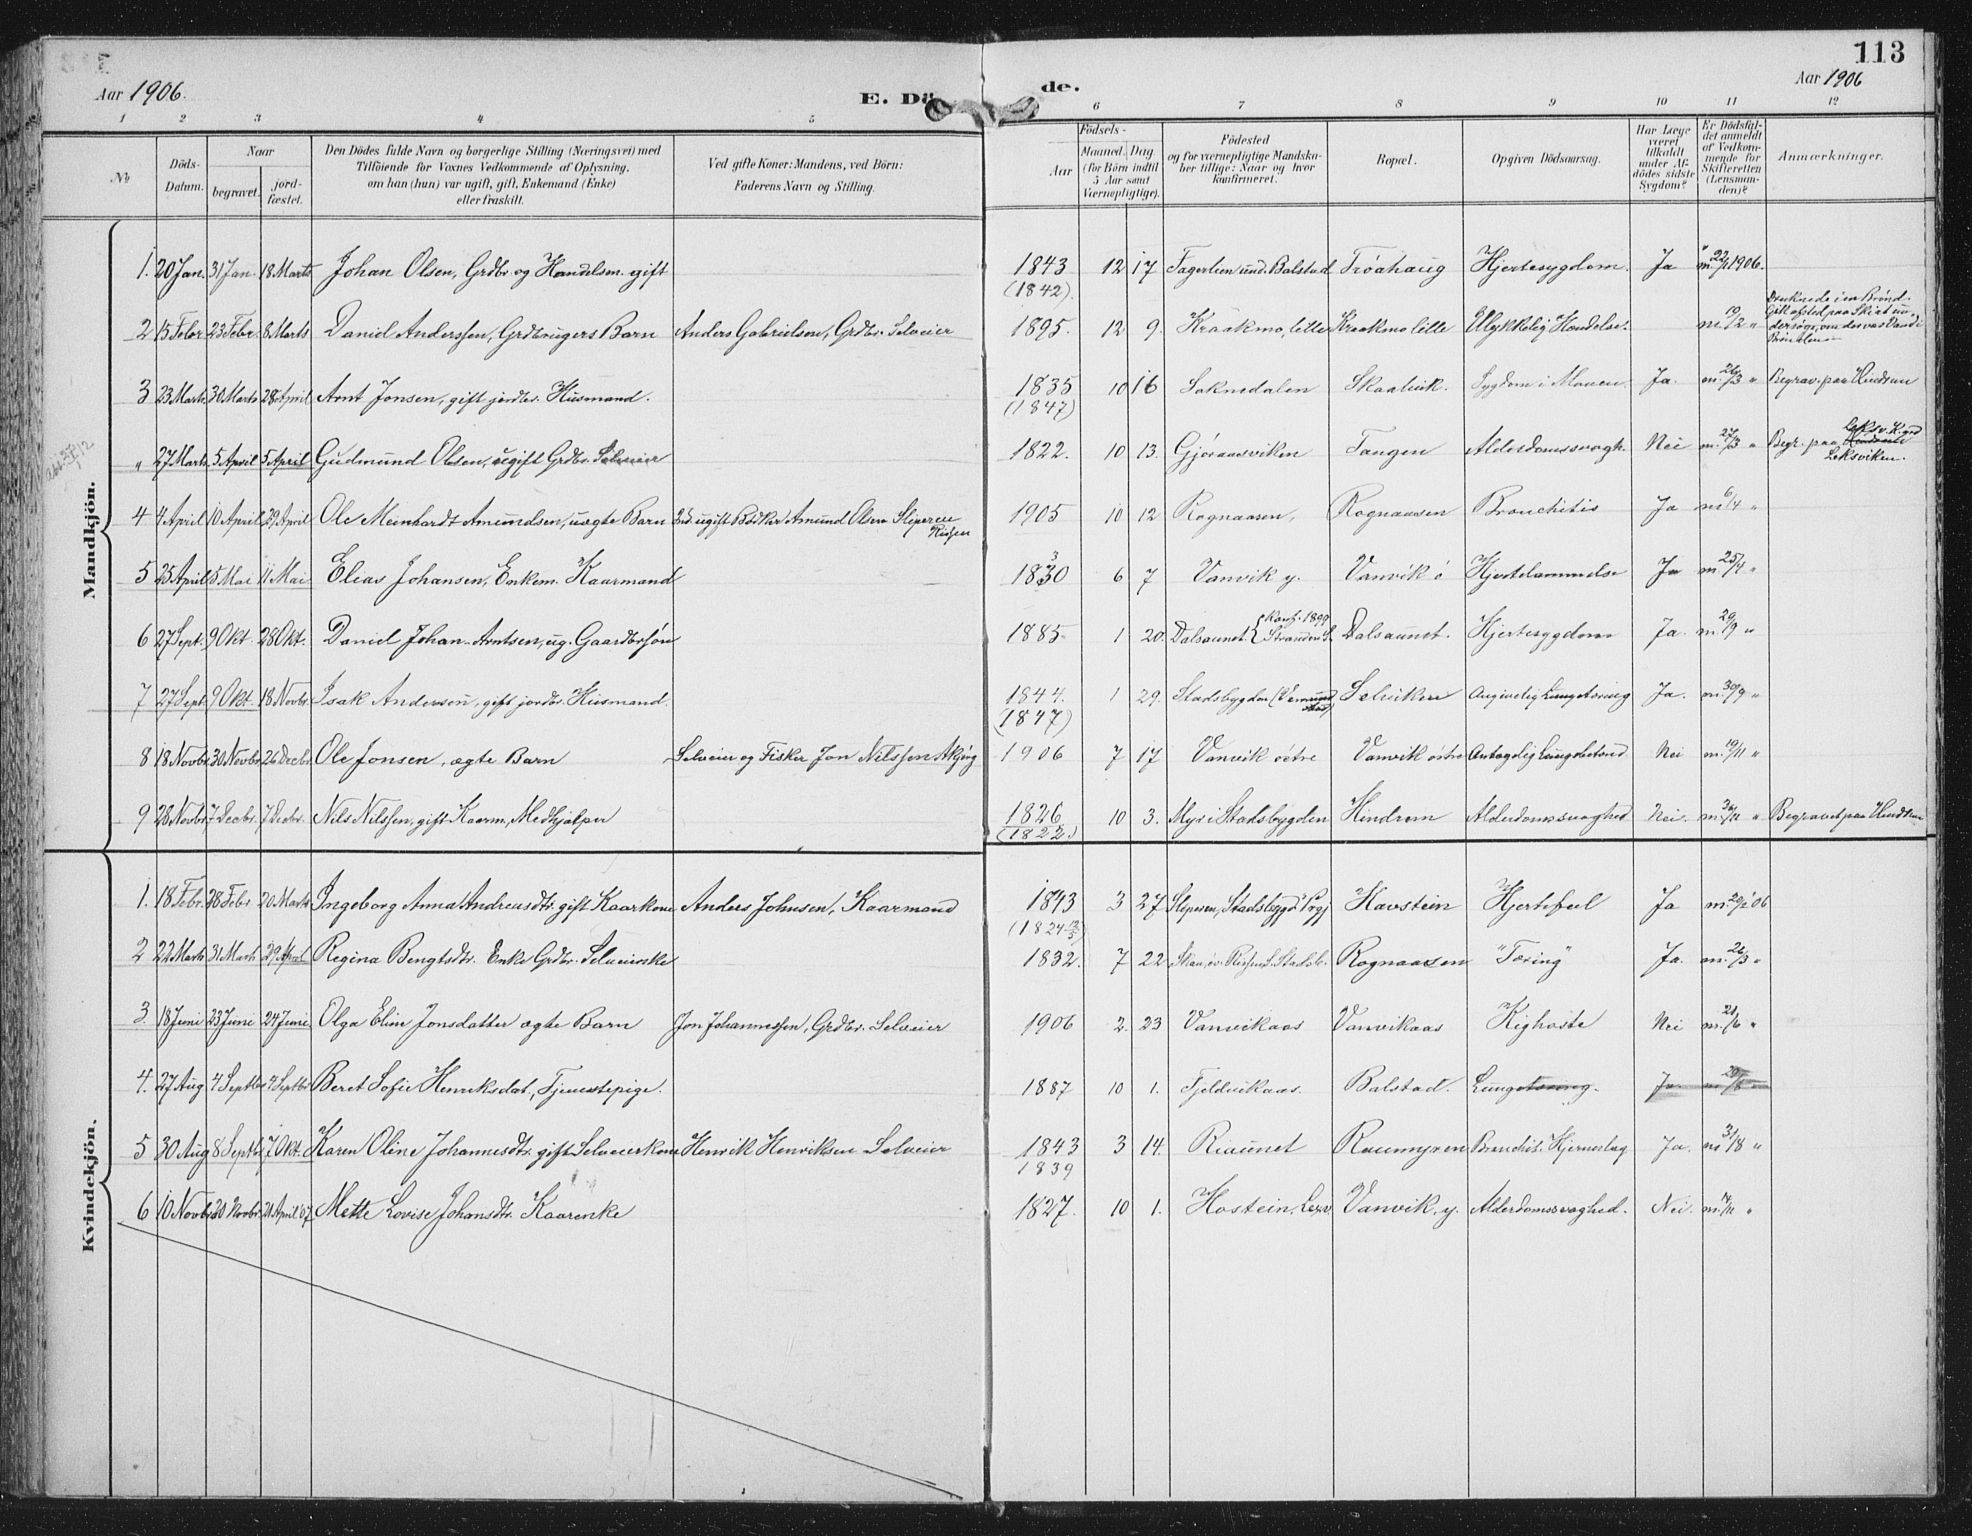 113
Aar 1906.
E. Dö
de.
Aar 1906
1 2 3 4 5 6 7 8 9 10 11 12
№
Döds-
Datum.
Naar
begravet.
jord-
fæstet.
Den Dödes fulde Navn og borgerlige Stilling (Næringsvei) med
Tilföiende for Voxnes Vedkommende af Oplysning.
om han (hun) var ugift, gift, Enkemand (Enke)
eller fraskilt.
Ved gifte Koner: Mandens, ved Börn:
Faderens Navn og Stilling.
Födsels-
Aar
Maaned. Dag.
(for Börn indtil
5 Aar samt
Værnepligtige).
Födested
og for værnepligtige Mandska-
ber tillige: Naar og hvor
konfirmeret.
Bopæl.
Opgiven Dödsaarsag.
Har Læge
været
tilkaldt
under Af-
dödes sidste
Sygdom?
Er Dödsfal-
det anmeldt
af Vedkom-
mende for
Skifteretten
(Lensman-
den)?
Anmærkninger.
Mandkjön.
1. 20 Jan. 31 Jan. 18 Marts Johan Olsen, Grdbr. og Handelsm. gift 1843 12 17 Fagerlien und. Balstad Tróahaug Hjertesygdom. Ja m. 22/1 1906.
(1842)
2 15 Febr 23 Febr. 8 Marts Daniel Anderssen, Grdbrugers Barn Anders Gabrielsen, Grdbr. Selveier 1895. 12 9. Kraakmo, lille Kraakmo lille Ulykkelig Hændelse. m. 19/2 "
Druknede i en Brönd.
3 23 Marts 30 Marts 28 April Arnt Jonsen, gift jordbr. Husmand. 1835 10 16 Soknedalen Skaalvik. Sygdom i Maven. Ja. m. 26/3 " Begrav. paa Hindrem
(1847)
" 27 Marts 5 April 5 April Gudmund Olsen, ugift Grdbr. Selveier 1822. 10 13. Gjöraasviken Tangen Alderdomssvagh. Nei m. 27/3 " Begr. paa Hindrem
Leksviken.
4 4 April 10 April 29 April Ole Meinhardt Amundsen, uægte Barn ugift Bödker Amund Olsen Sliperen
Rissen
1905 10 12 Rognaasen, Rognaasen Bronchitis Ja m. 6/4 "
5 25 April 5 Mai 11 Mai Elias Johansen, Enkem. Kaarmand 1830 6 7 Vanvik y. Vanvik ö Hjertelammelse Ja m. 25/4 "
3
6 27 Sept. 9 Okt. 28 Okt. Daniel Johan Arntsen, ug. Gaardbrsön 1885. 1 20. Dalsaunet Dalsaunet. Hjertesygdom Ja. m. 29/9 "
7 27 Sept 9 Okt. 18 Novbr. Isak Andersen, gift jordbr. Husmand. 1844. 1 29. Stadsbygden Selviken Angivelig Lungetæring Ja. m. 30/9 "
(1847)
8 18 Novbr. 30 Novbr. 26 Decbr. Ole Jonsen, ægte Barn Selveier og Fisker Jon Nilssen Akjög 1906 7 17 Vanvik östre Vanvik östre Antagelig Lungebetænd. Nei m. 19/11 "
9 28 Novbr 7 Decbr. 7 Decbr. Nils Nilssen, gift Kaarm., Medhjælper 1826 10 3. Myr i Stadsbygden Hindrem Alderdomssvaghed Nei. m. 30/11 " Begravet paa Hindrem
(1822.)
Kvindekjön.
1. 18 Febr. 28 Febr 20 Marts Ingeborg Anna Andreasdtr. gift Kaarkone Anders Johnsen, Kaarmand 1843 3 27 Sliperen, Stadsbygd Havstein Hjertefeil Ja m. 20/2 06
2 22 Marts 31 Marts 29 April Regina Bengtsdtr. Enke Grdbr. Selveierske 1832. 7 22 Rognaasen "Tæring" Ja. m. 26/3 "
3. 18 Juni 23 Juni 24 Juni. Olga Elin Jonsdatter ægte Barn Jon Johannessen, Grdbr. Selveier 1906 2. 23 Vanvikaas Vanvikaas Kighoste Nei m. 21/6 "
4. 27 Aug 4 Septbr 4 Septbr Beret Sofie Henriksdat., Tjenestepige. 1887 10 1. Fjeldvikaas. Balstad. Lungetæring. Ja. m. 29/8 "
5 30 Aug 8 Septbr 7 Okt. Karen Oline Johannesdtr. gift Selveierkone Henrik Henriksen Selveier 1843 3 14. Riaunet Raumyren Bronchit. Hjerneslag Ja. m. 31/8 "
1839
6 10 Novbr 20 Novbr. 21 April 07 Mette Lovise Johansdtr. Kaarenke 1827. 10 1. Hostein, Lexv Vanvik. y. Alderdomssvaghed. Nei. m. 14/11 "